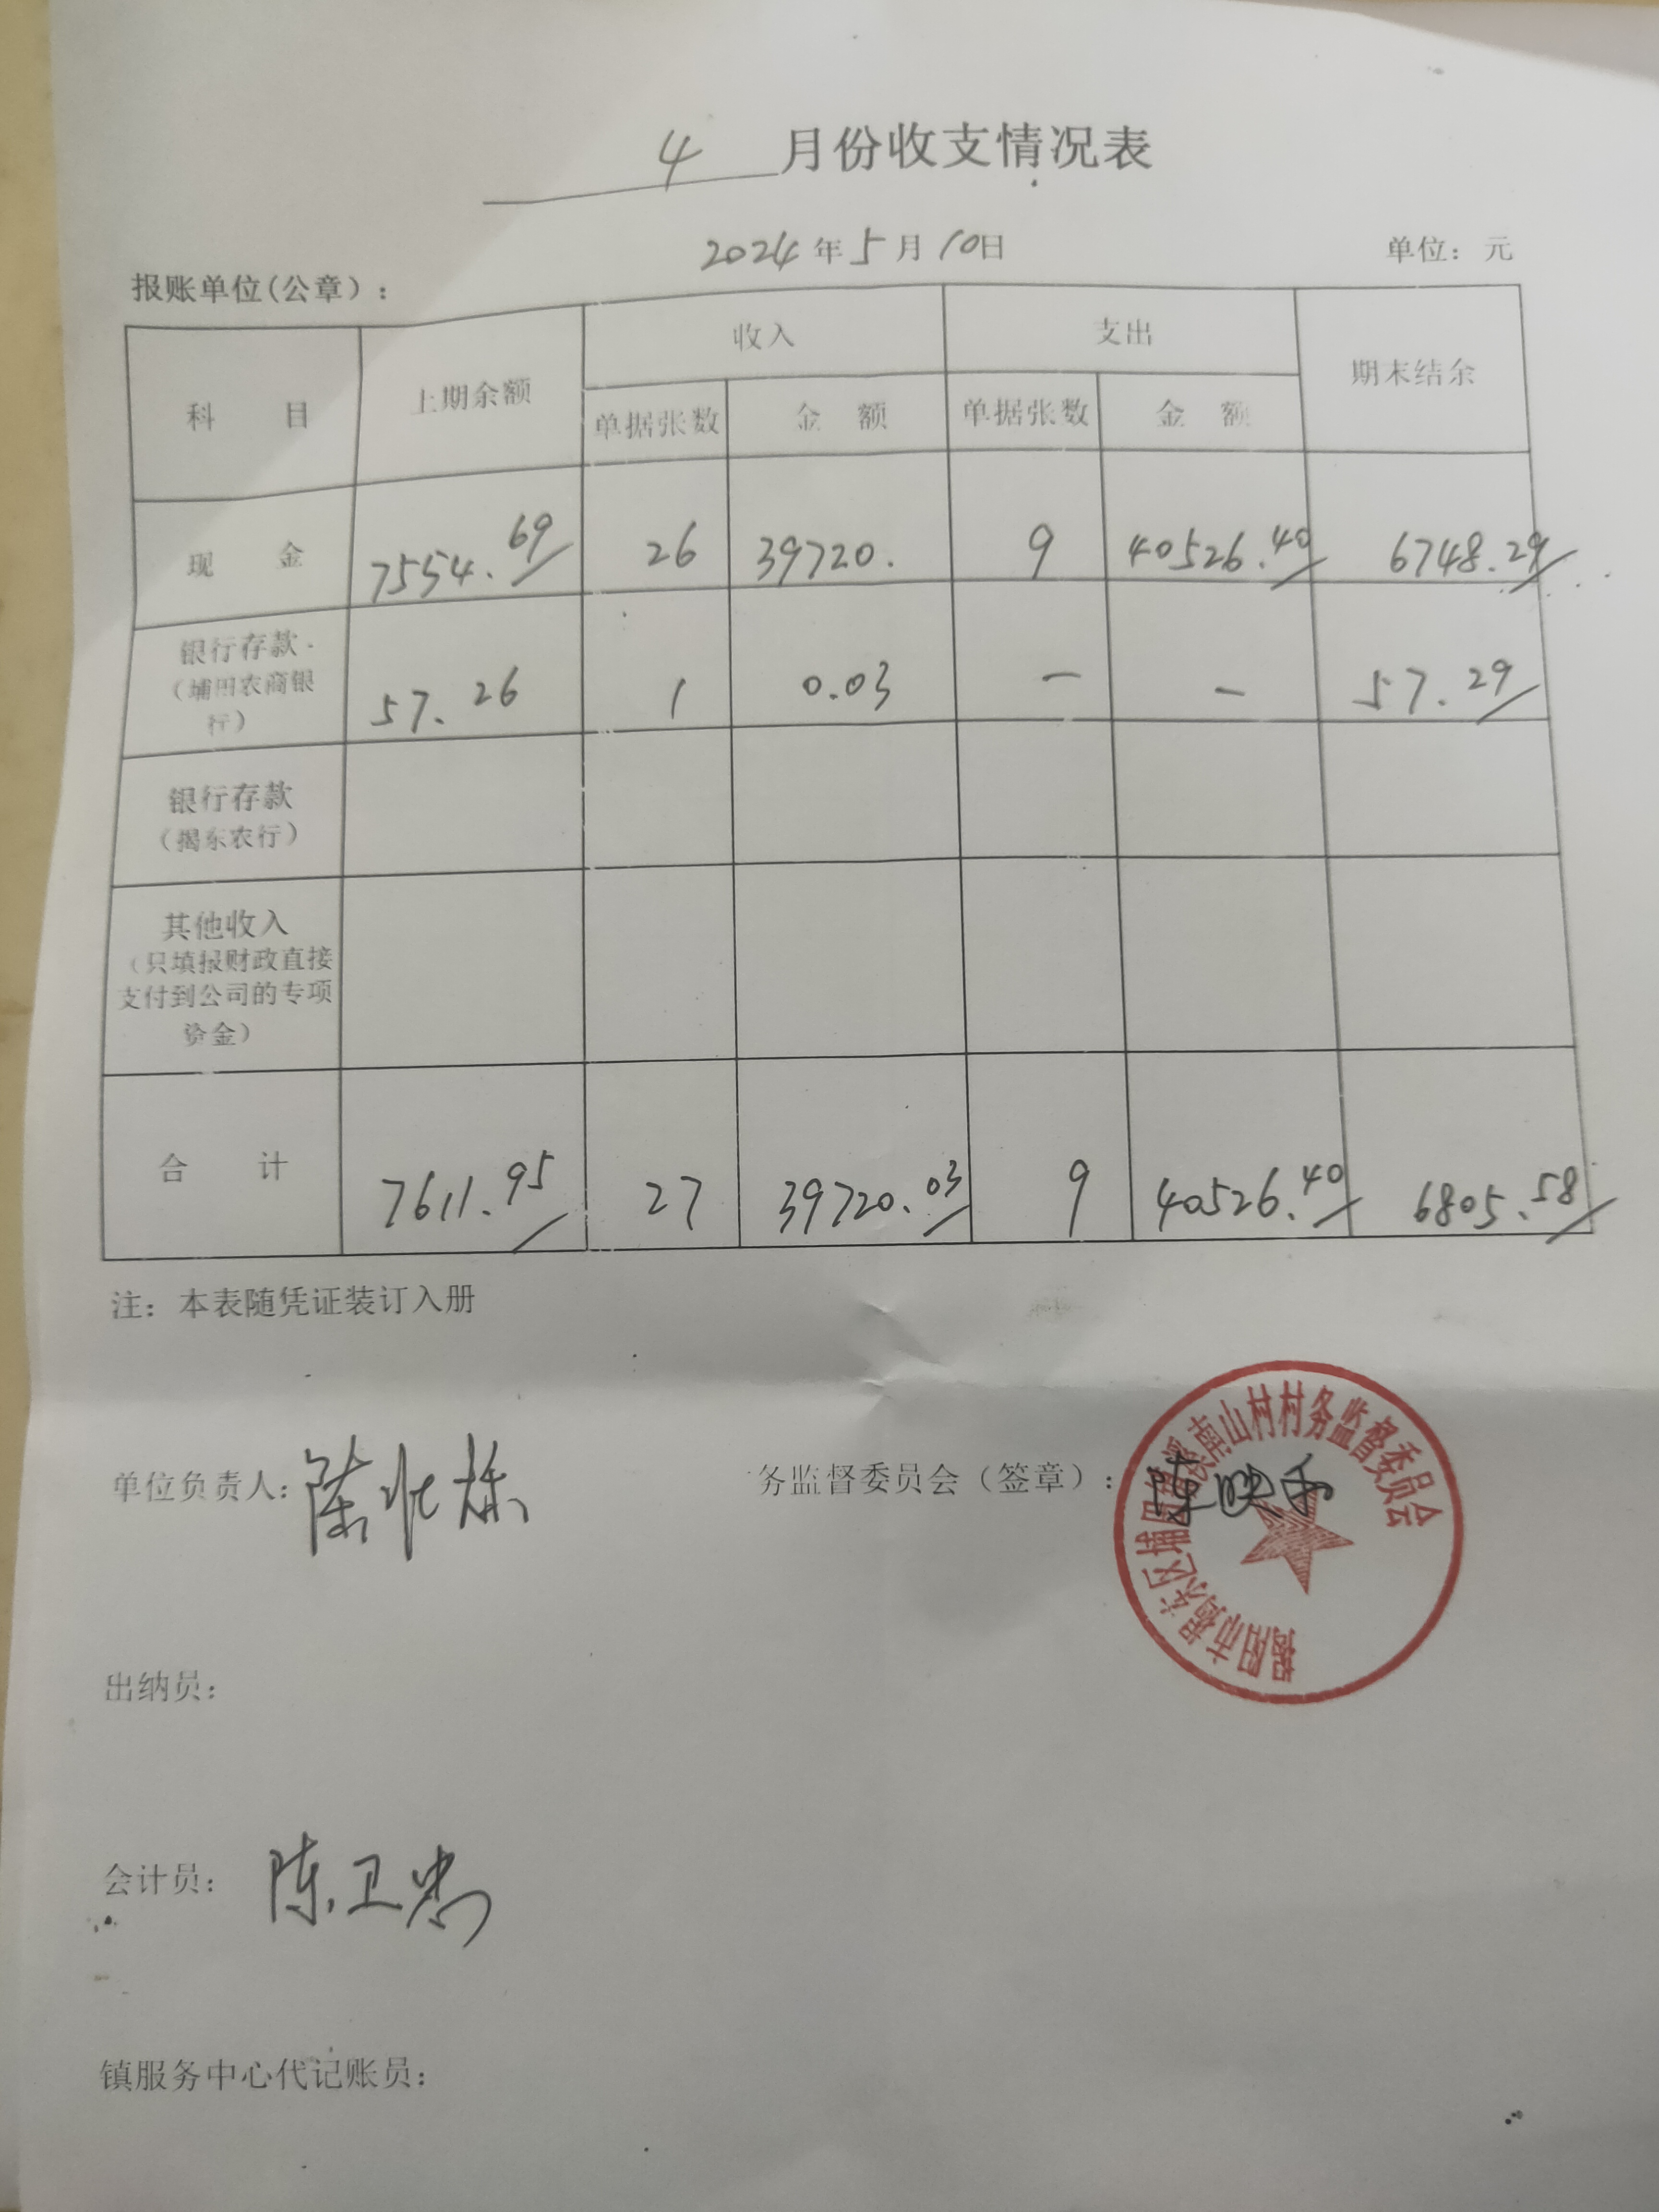 4 月份收支情况表
2024年5月10日 单位：元
报账单位(公章）：
科 目 上期余额 收入 支出 期末结余
单据张数 金 额 单据张数 金 额
现 金 7554.69 26 39720. 9 40526.40 6748.29
银行存款
（埔田农商银
行）
57.26 1 0.03 — — 57.29
银行存款
（揭东农行）
其他收入
（只填报财政直接
支付到公司的专项
资金）
合 计 7611.95 27 39720.03 9 40526.40 6805.58
注：本表随凭证装订入册
单位负责人：陈
务监督委员会（签章）：陈映和
揭阳市揭东区埔田镇溪南山村村务监督委员会
出纳员：
会计员：陈卫忠
镇服务中心代记账员：